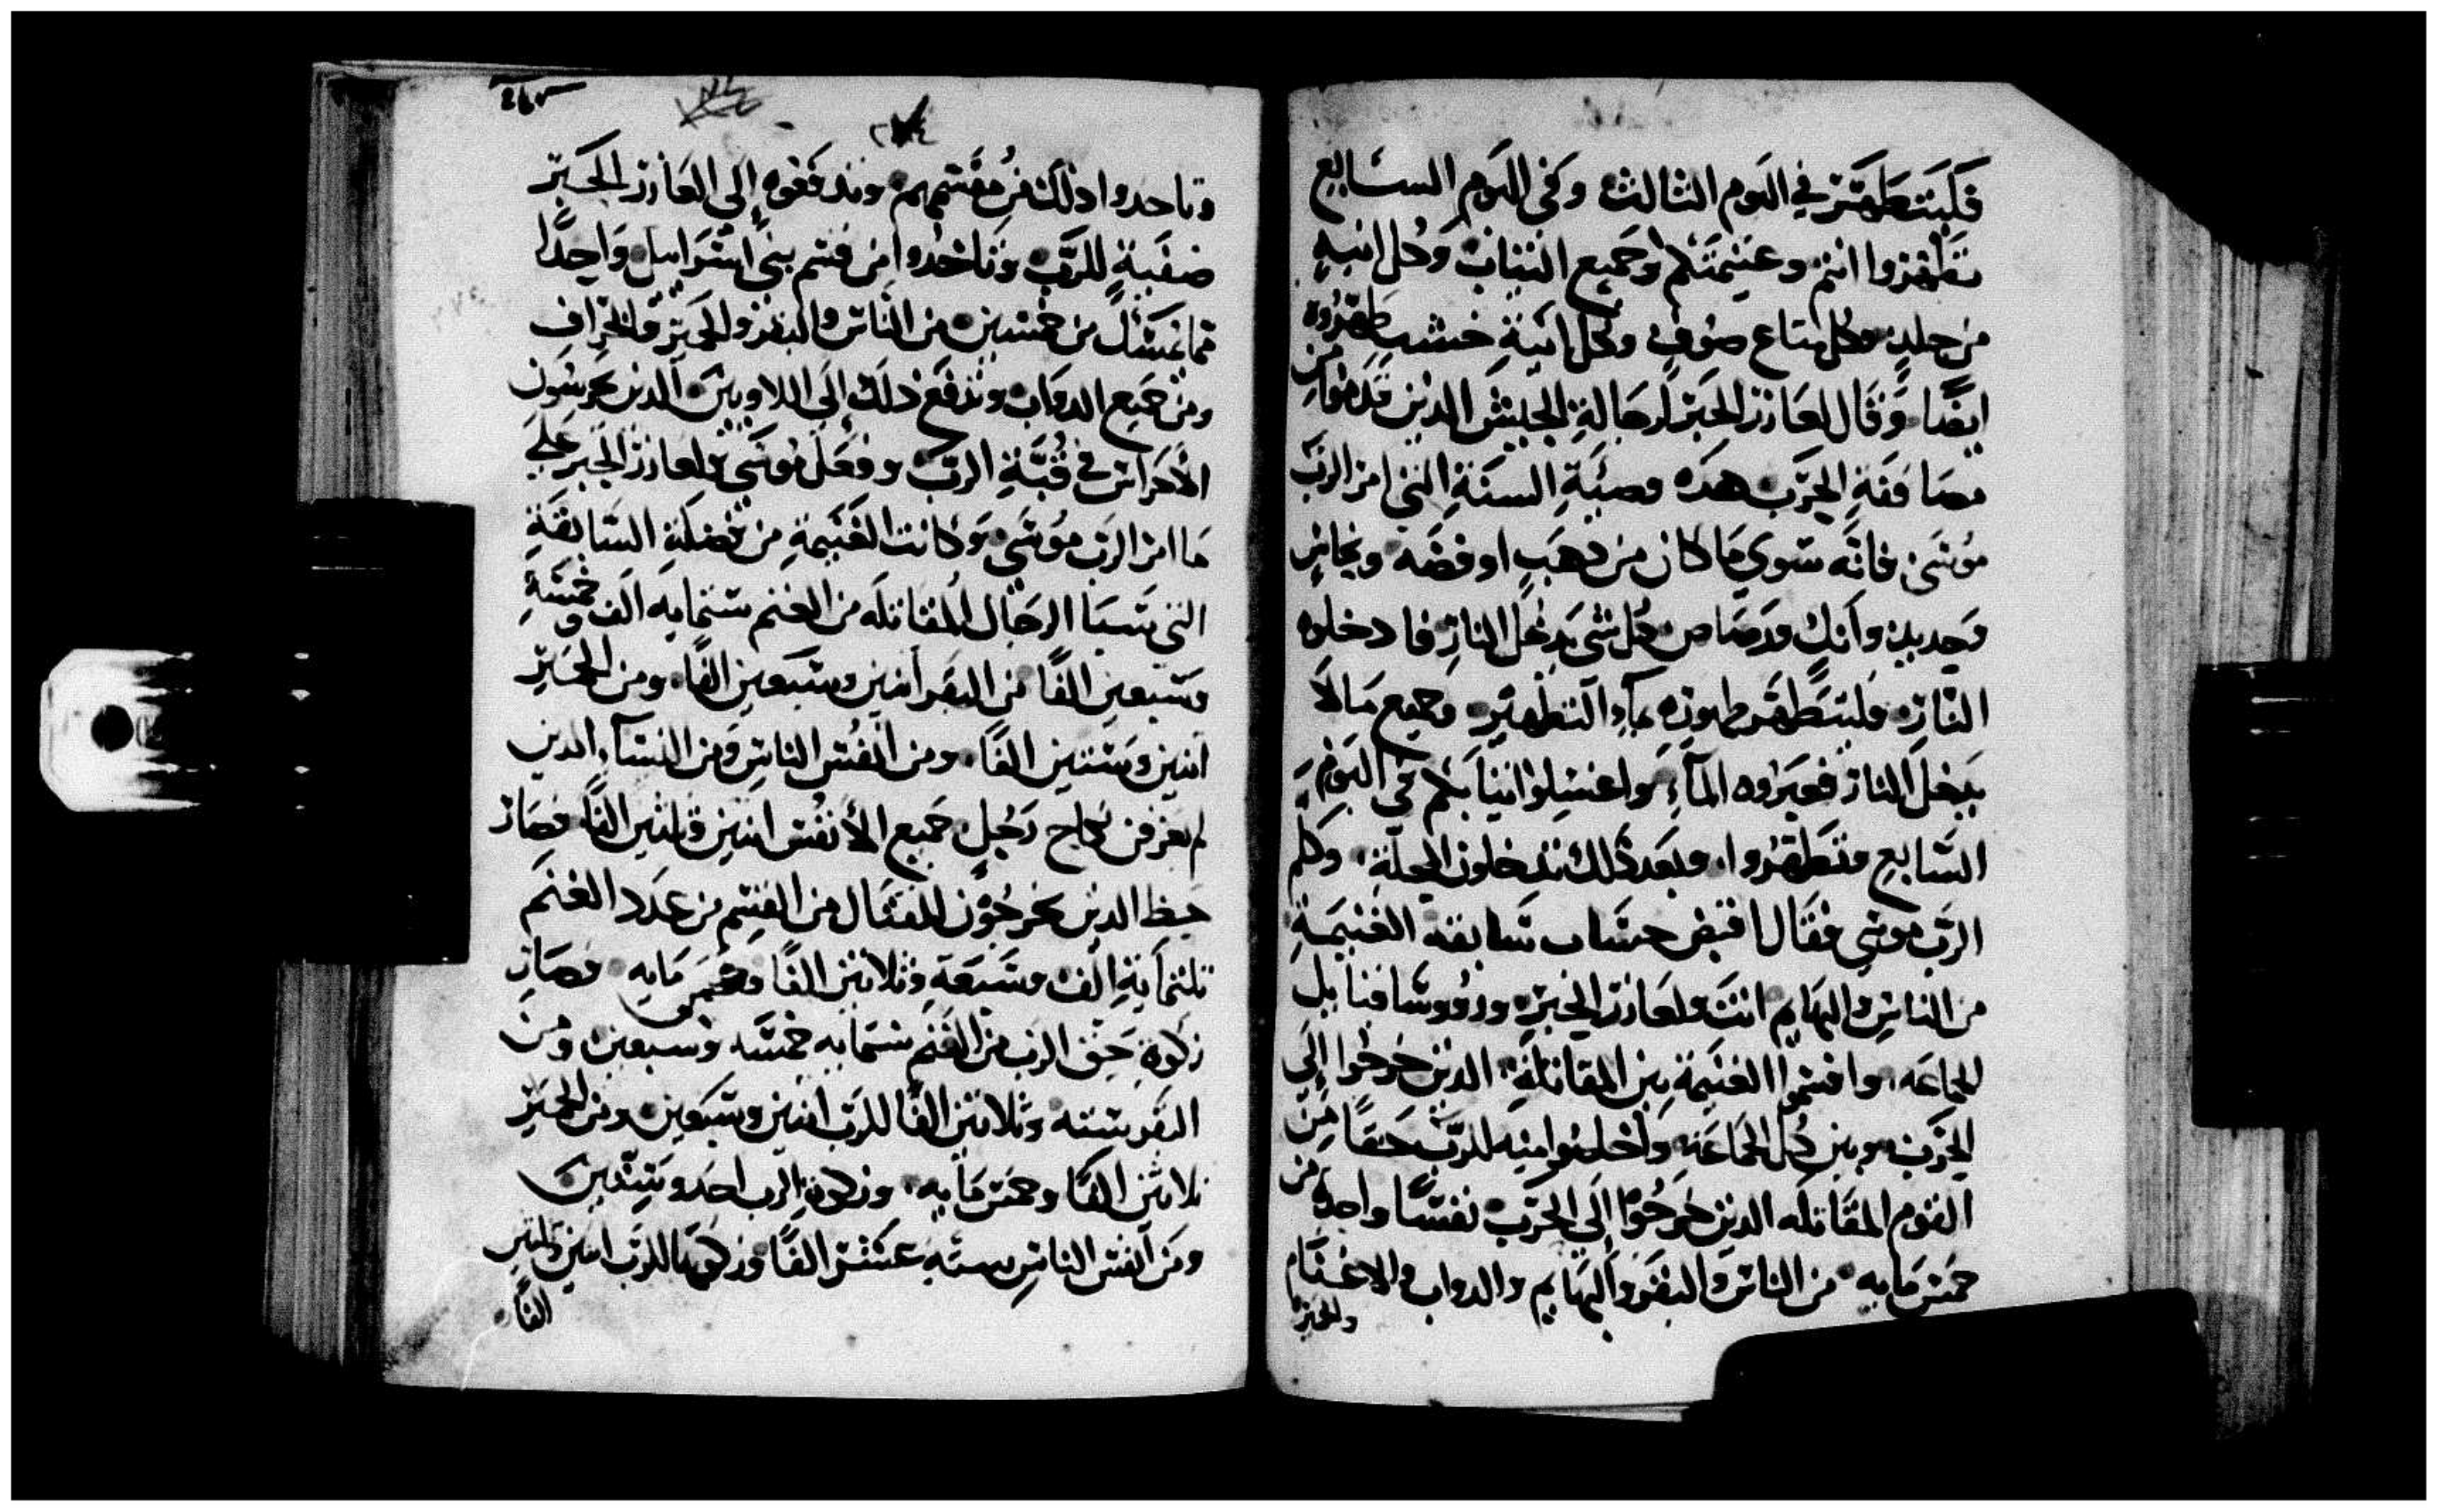 فليتطهر في اليوم الثالث وفي اليوم السابع
تطهروا انتم وغنيمتكم وجميع الثياب وكل انيه
من جلد وكل متاع صوف وكل انية خشب طهروه
ايضا وقال لعازر الحبر لرجالة الجيش الدين قدموا من
مصاففة الحرب هده وصية السنة التي امر الرب
موسى فانه سوي ما كان من دهب او فضه ونحاس
وحديد وانك ورصاص كل شي يدخل النار فادخلوه
النار وليتطهر طهوره بماء التطهير وجميع ما لا
يدخل النار فعبروه المآء واغسلوا ثيابكم في اليوم
السابع وتتطهروا وبعد ذلك تدخلون المحلة وكلم
الرب موسى فقال اقبض حساب سابقة الغنيمة
من الناس والبهايم انت ولعازر الحبر وروؤسا قبايل
الجماعه واقسموا الغنيمة بين المقاتلة الدين خرجوا إلي
الحرب وبين كل الجماعة واخلصوا منه للرب حقا من
القوم المقاتله الدين خرجوا إلي الحرب نفسا واحده من
خمس مايه من الناس والبقر والبهايم والدواب والاغنام
والحمير
وتاخدوا ذلك من مقسمهم وتدفعوه إلي العازر الحبر
ضفية للرب وتاخدوا من قسم بني اسراييل واحدًا
من خمسين من الناس والبقر والحمير والخراف
ومن جميع الدواب وتدفع ذلك إلي اللاويين الدين يحرسون
الأحراس في قبة الرب وفعل موسي ولعازر الحبر علي
ما امر الرب موسي وكانت الغنيمة من فضلة السابقة
التي سبا الرجال المقاتله من الغنم ستمايه الف وخمسة
وسبعين الفًا من البقر اتنين وسبعين الفًا ومن الحمير
اتنين وستين الفًا ومن انفس الناس ومن النسآء الدين
لم يعرفن نكاح رجل جميع الأنفس اتنين وثلثين الفًا فصار
حظ الدين يخرجون للقتال من القسم من عدد الغنم
ثلثماية الف وسبعة وثلاثين الفًا وخمس مايه وصار
زكوة حق الرب من الغنم ستمايه خمسه وسبعين ومن
البقر سته وثلاثين الفًا للرب اتنين وسبعين ومن الحمير
ثلاثين الفًا وخمس مايه وزكوة الرب احد وستين
ومن انفس الناس ستة عشر الفًا وزكوتها للرب اتنين وثلثين
الفًا